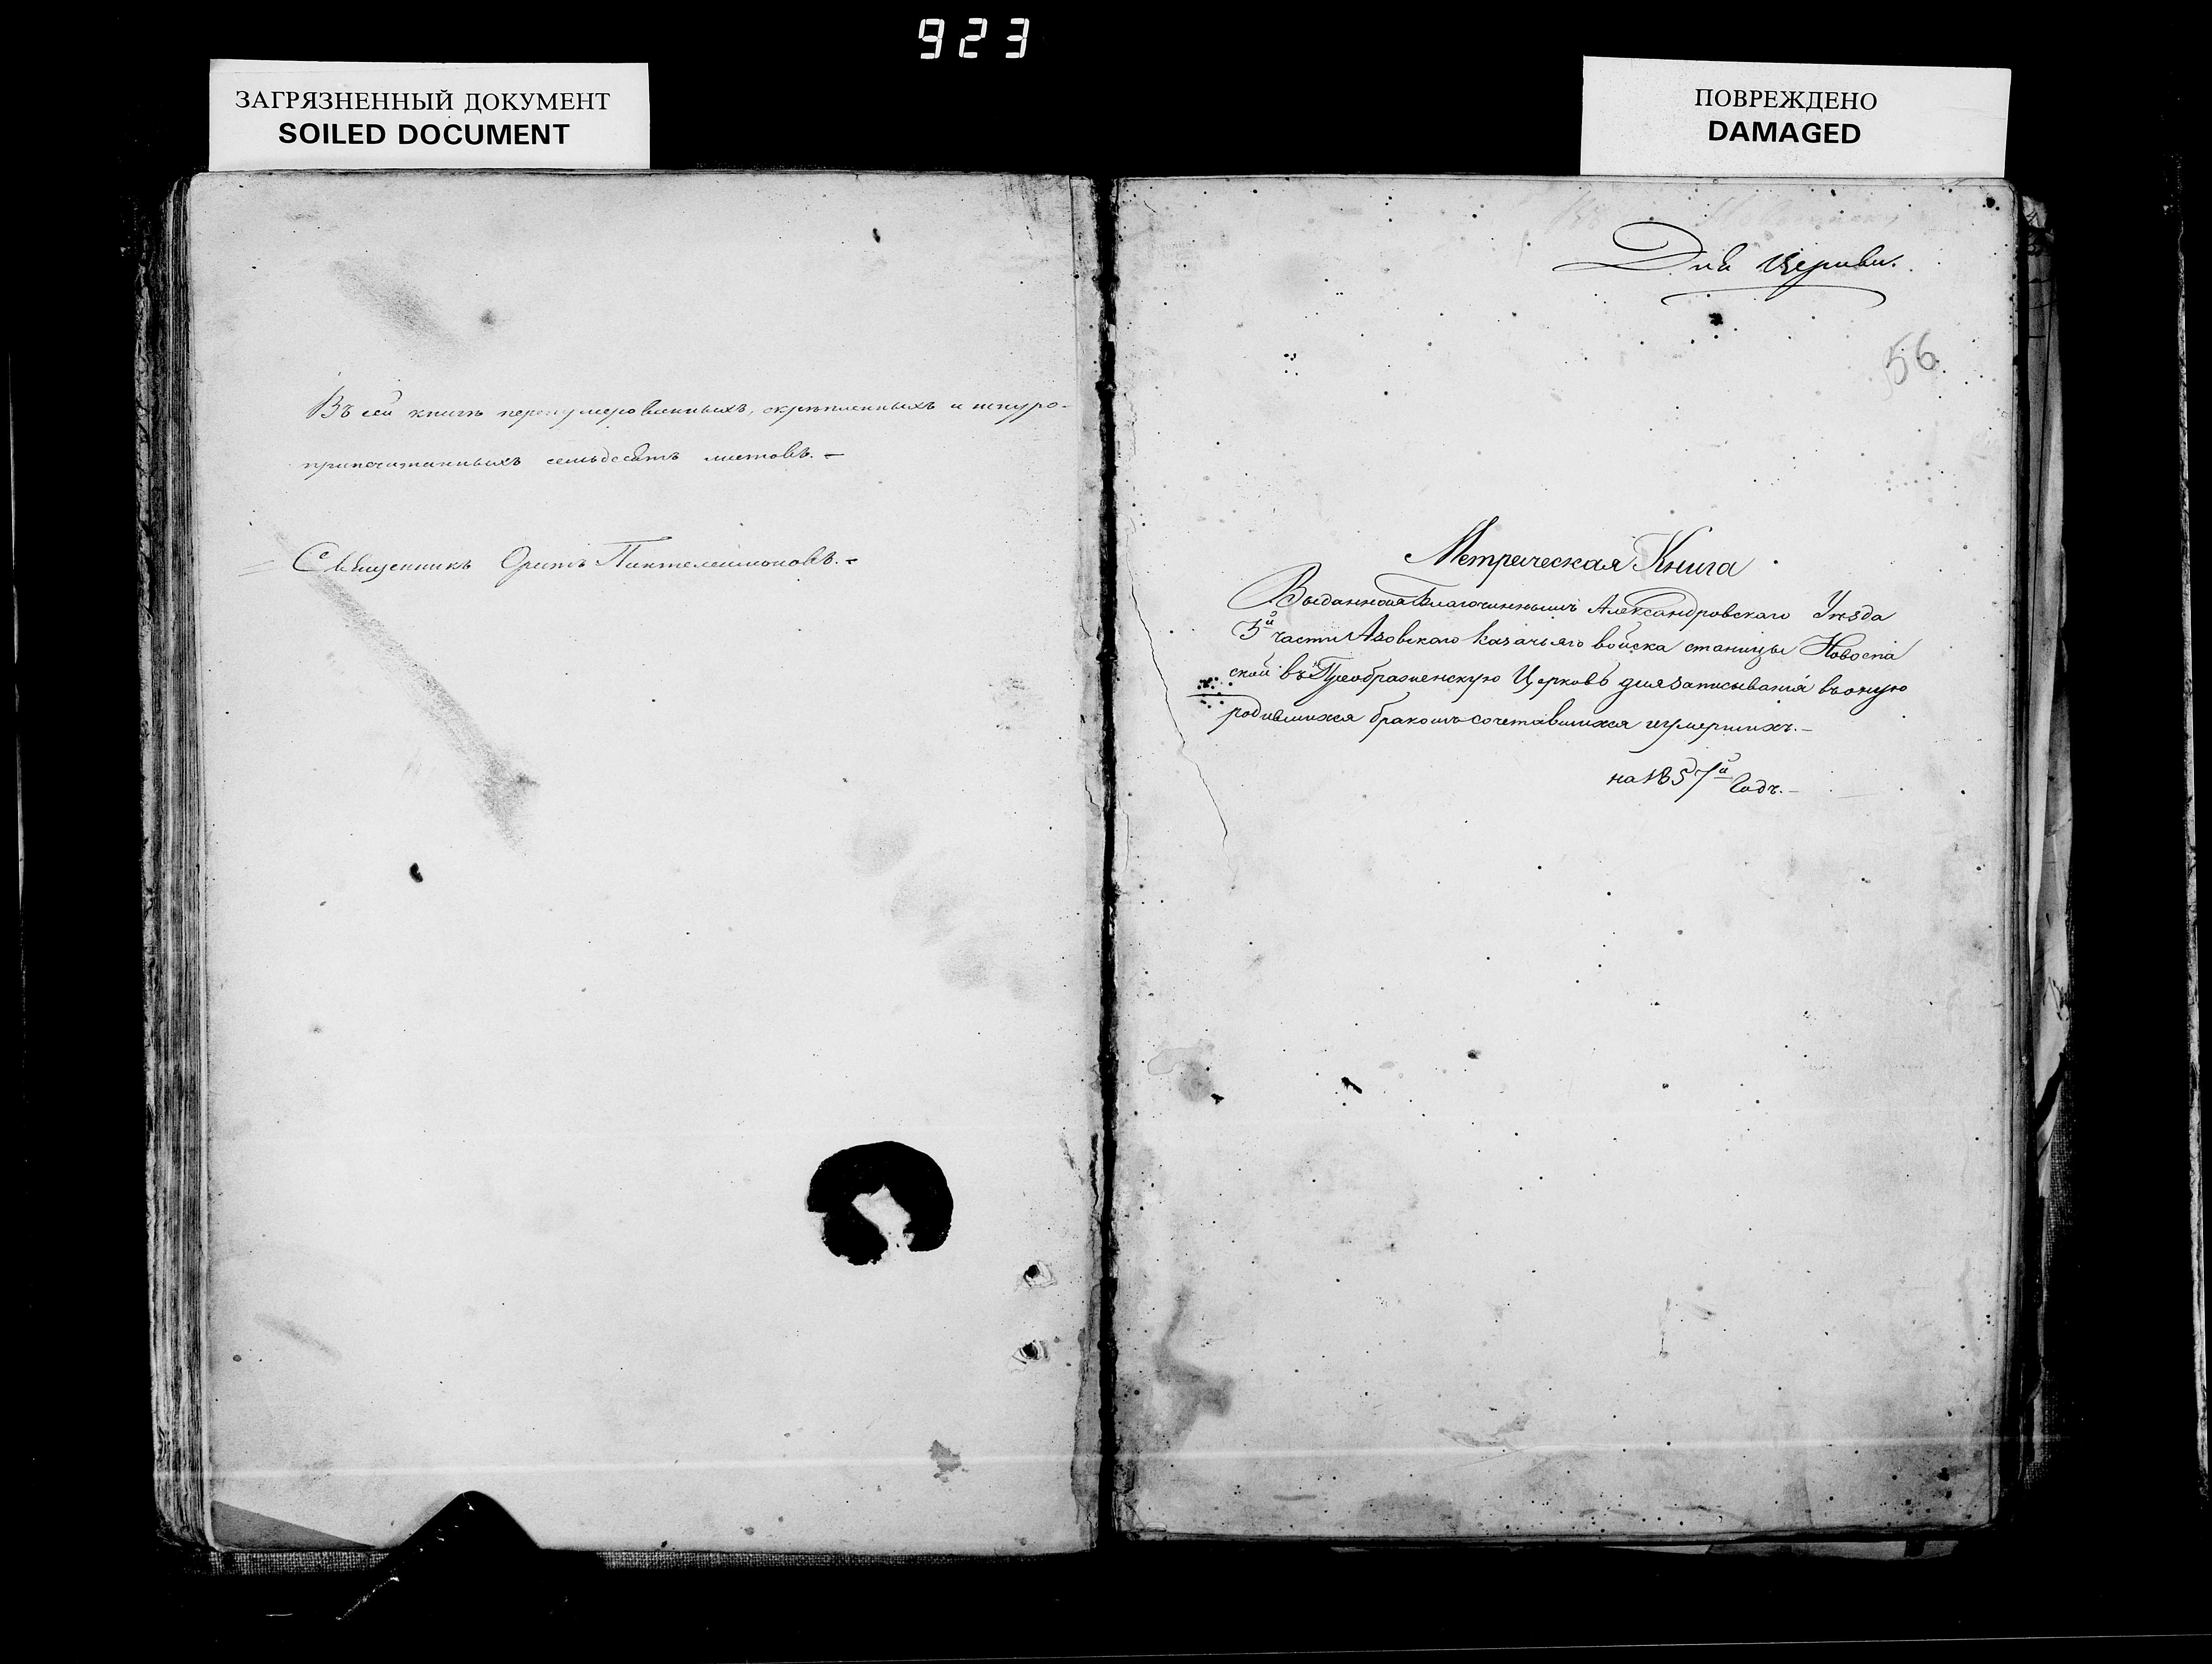 923
ЗАГРЯЗНЕННЫЙ ДОКУМЕНТ
SOILED DOCUMENT
ПОВРЕЖДЕНО
DAMAGED
Въ сей книгѣ перенумерованныхъ, скрѣпленныхъ и шнуро-
припечатанныхъ семьдесятъ листовъ.-
Священникъ Пантелеимоновъ.-
Для Церкви.
56
Метрическая Книга
Выданная Благочиннымъ Александровскаго Уѣзда
3й части Азовскаго казачьяго войска станицы Новоспа
ской въ Преображенскую Церковь для записыванія въ оную
родившихся бракомъ сочетавшихся и умершихъ.-
на 1857й Годъ.-